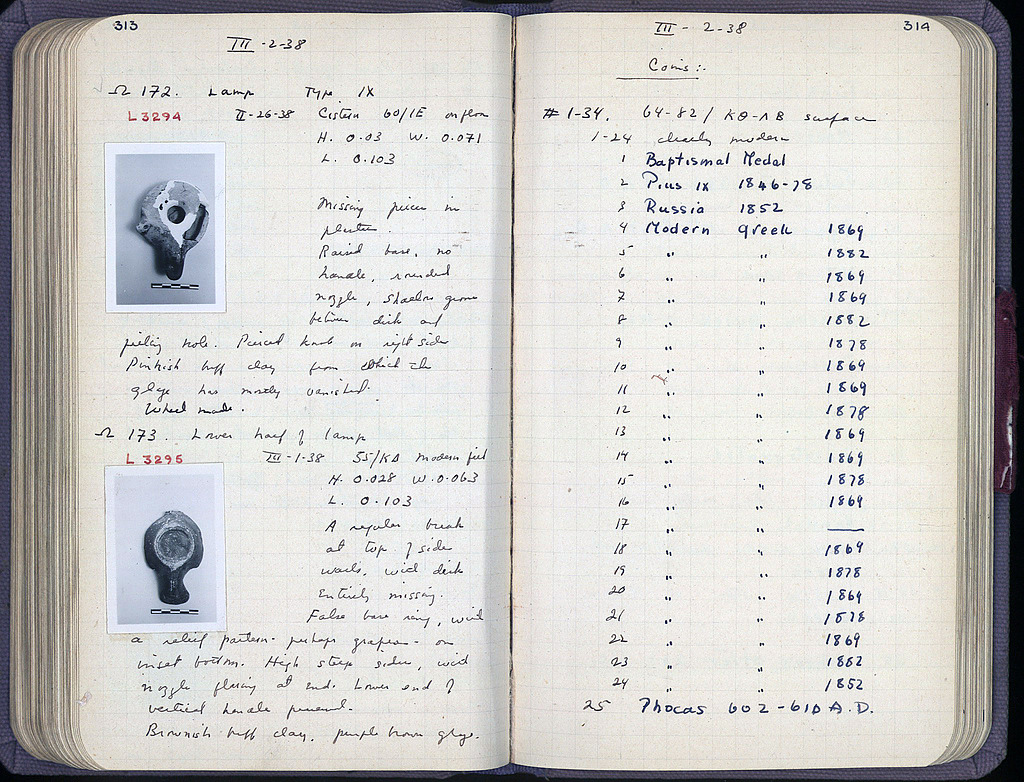 313
III - 2-38
Ω 172. Lamp Type IX
L 3294 II-26-38 Cistern 60/ΙΕ on floor
H. 0.03 W. 0.071
L. 0.103
Missing pieces in
plaster.
Raised base, no
handle, rounded
nozzle, shallow groove
between disk and
filling hole. Pierced knob on right side
Pinkish buff clay from which the
glaze has mostly vanished.
Wheel made.
Ω 173. Lower half of lamp
L 3295 III-1-38 55/ΚΔ modern fill
H. 0.028 W. 0.063
L. 0.103
A regular break
at top of side
walls, with disk
entirely missing.
False base ring, with
a relief pattern - perhaps grapes - on
inset bottom. High steep sides, with
nozzle flaring at end. Lower end of
vertical handle preserved.
Brownish buff clay, purple brown glaze.
III - 2-38 314
Coins :.
# 1-34. 64-82 / ΚΘ-ΛΒ surface
1-24 clearly modern
1 Baptismal Medal
2 Pius IX 1846-78
3 Russia 1852
4 Modern Greek 1869
5 " " 1882
6 " " 1869
7 " " 1869
8 " " 1882
9 " " 1878
10 " " 1869
11 " " 1869
12 " " 1878
13 " " 1869
14 " " 1869
15 " " 1878
16 " " 1869
17 " " —
18 " " 1869
19 " " 1878
20 " " 1869
21 " " 1878
22 " " 1869
23 " " 1882
24 " " 1852
25 Phocas 602-610 A.D.